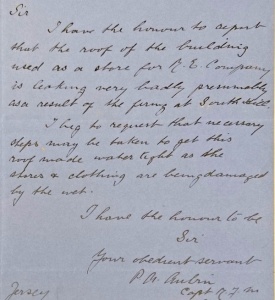 Sir
I have the honour to report
that the roof of the building
used as a store for R.E. Company
is leaking very badly presumably
as a result of the firing at South Hill
I beg to request that necessary
steps may be taken to get this
roof made water tight as the
stores & clothing are being damaged
by the wet.
I have the honour to be
Sir
Your obedient servant
P. N. Aubin
Capt R J M
Jersey